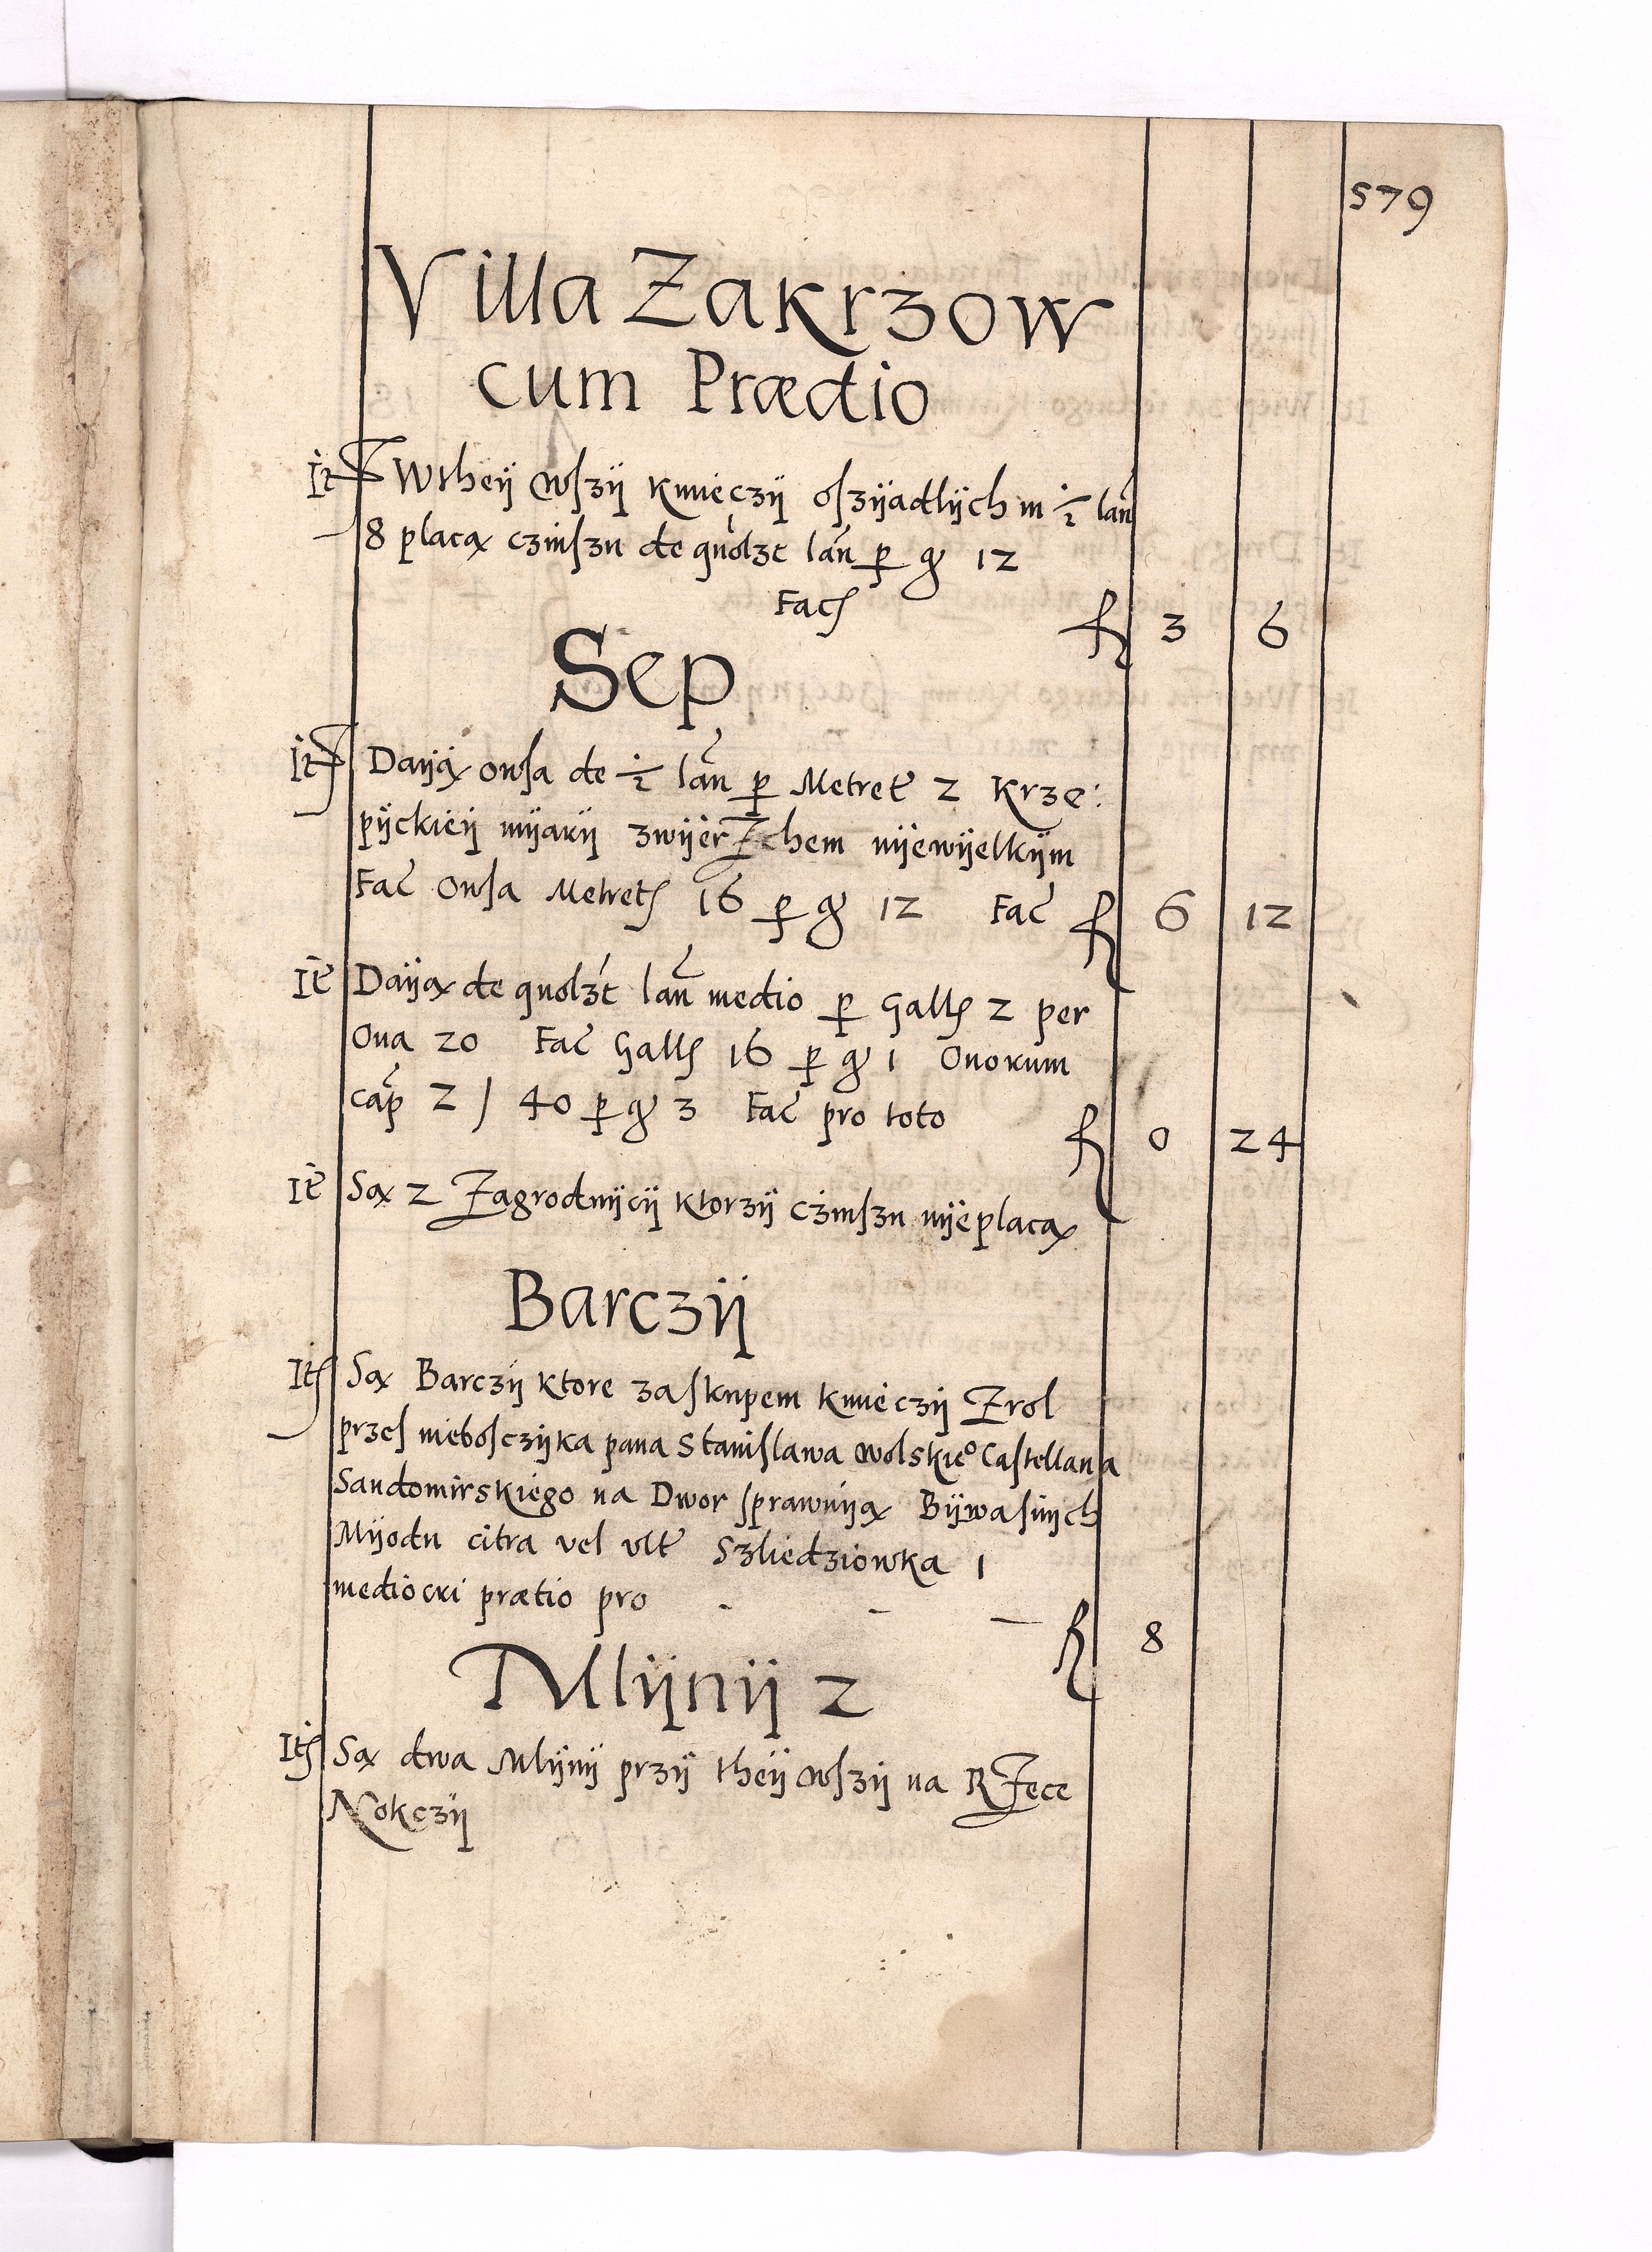 579
Villa Zakrzow
cum Prædio
It Wtheÿ wszÿ kmieczÿ oszÿadlÿch in ½ lan
8 placą czinszu de quolzt lan p gr 12
Fac fl 3 6
Sep
It Daÿą owsa de ½ lan p Metret 2 Krze:
pÿckieÿ mÿarÿ zwÿerzchem nÿewÿelkÿm
Fac Owsa Metret 16 p gr 12 Fac fl 6 12
It Daÿą de quolzt lan medio p Gall 2 per
Oua 20 Fac Gall 16 p gr 1 Ouorum
cap 2 / 40 p gr 3 Fac pro toto fl 0 24
It Są 2 Zagrodnÿcÿ ktorzÿ czinszu nÿeplacą
Barczÿ
It Są Barczÿ ktore zaskupem kmieczÿ Zrol
przes nieboszczÿka pana Stanislawa Wolskieo Castellana
Sandomirskiego na Dwor sprawuÿą Bÿwasnÿch
Mÿodu citra vel vlt Szliedziowka 1
mediocri prætio pro - - - fl 8
Mlÿnÿ 2
It Są dwa Mlÿnÿ przÿ theÿ wszÿ na Rzece
Nokczÿ